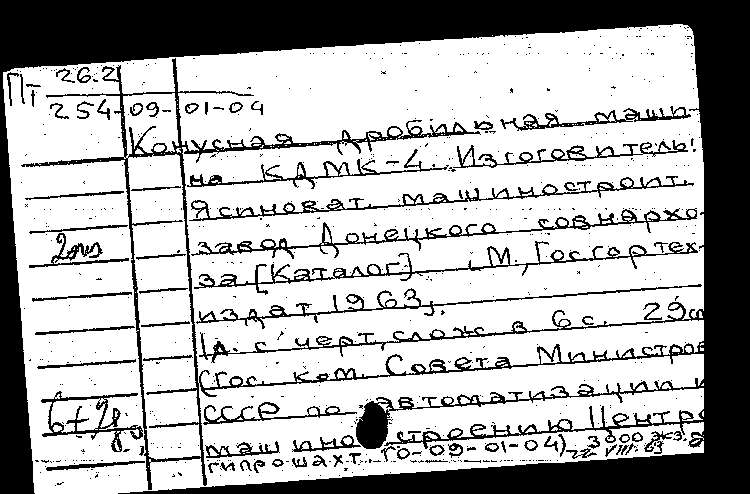 Пт 26.2
254-09-01-04
Конусная дробильная маши-
на КДМК-4. Изготовитель:
Ясиноват. машиностроит.
завод Донецкого совнархо-
за. [Каталог]. М., Госгортех-
издат, 1963.
1д. с черт., слож в 6 с. 29см
(Гос. ком. Совета Министров
СССР по автоматизации и
машиностроению Центро
гипрошахт. ГО-09-01-04) 3000 экз.
22 VIII. 63